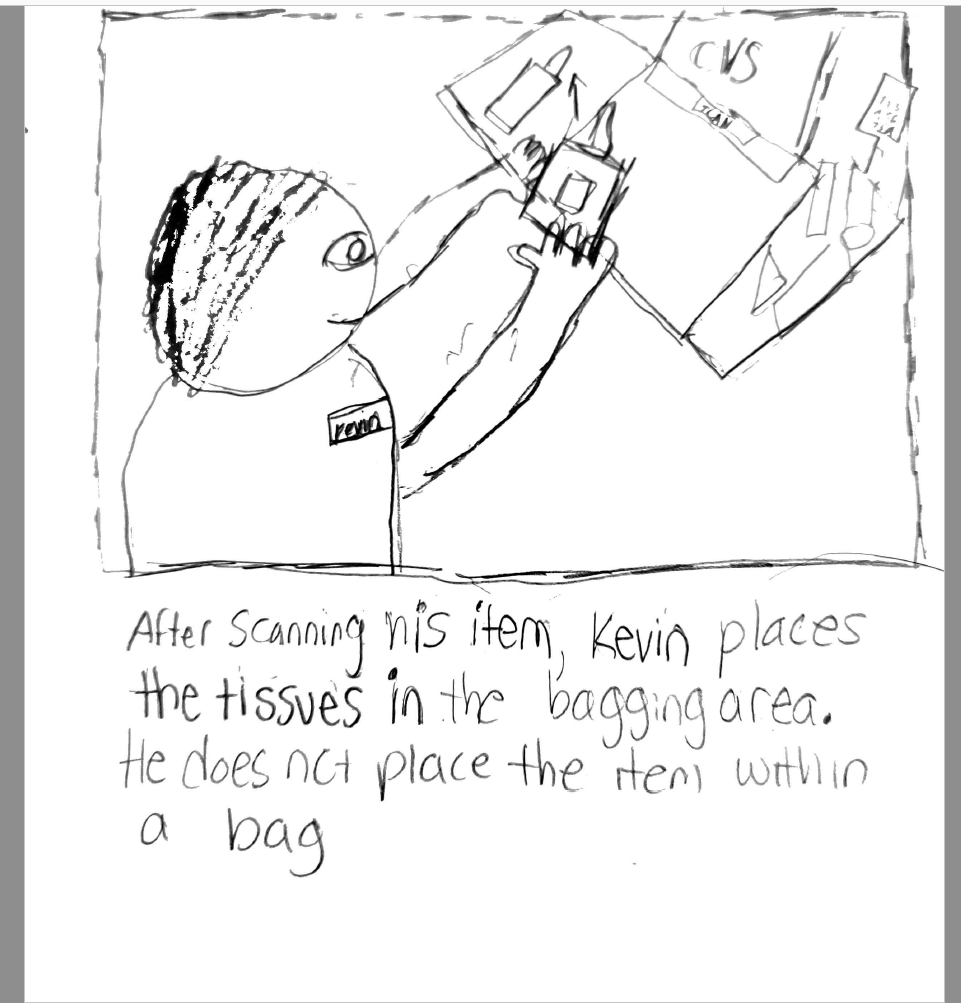 CVS
SCAN
Kevin
After scanning his item, Kevin places
the tissues in the bagging area.
He does not place the item within
a bag